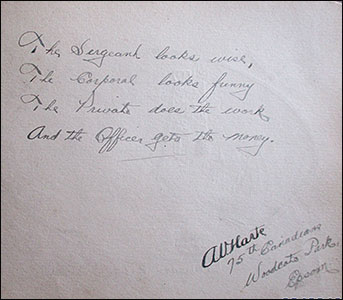 The Sergeant looks wise,
The Corporal looks funny
The Private does the work
And the Officer gets the money.
AWHarte
75th Canadians
Woodcote Park.
Epsom